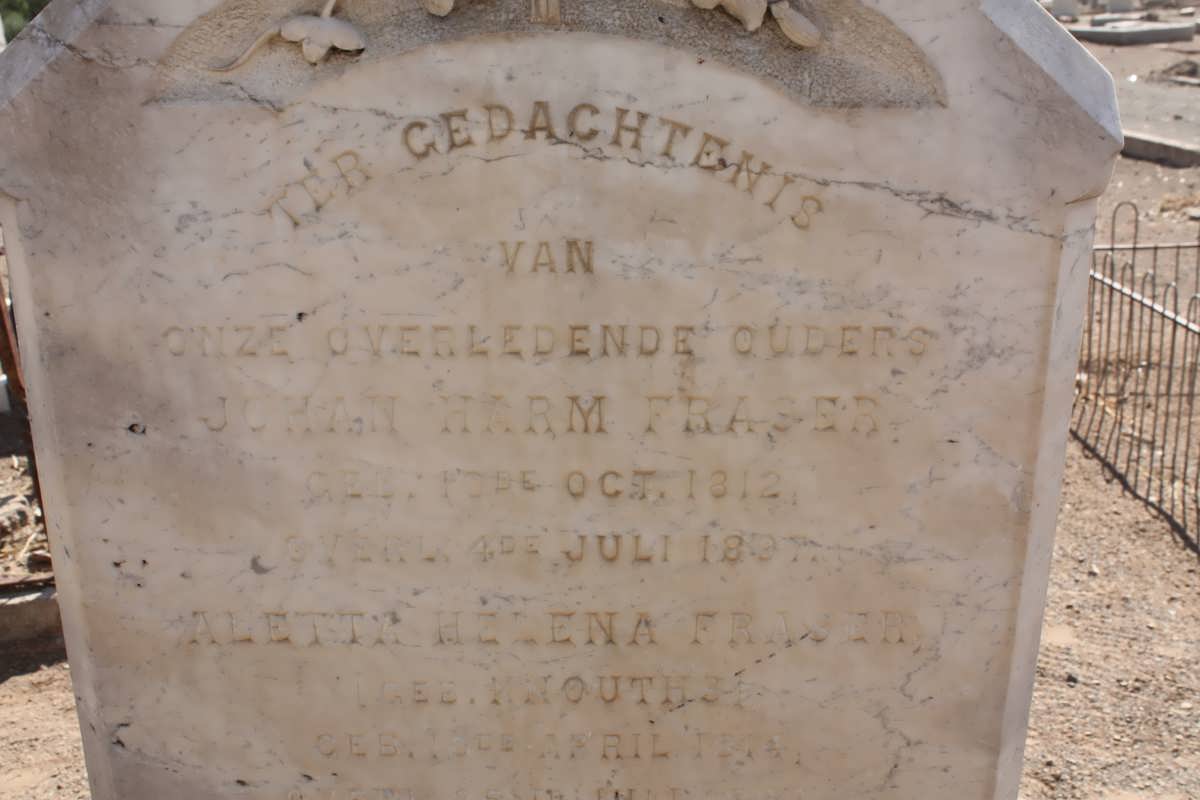 TER GEDACHTENIS
VAN
ONZE OVERLEDENDE OUDERS
JOHAN HARM FRASER,
GEB. 13DE OCT. 1812,
OVERL. 4DE JULI 1897.
ALETTA HELENA FRASER,
(GEB.
GEB. APRIL 1814,